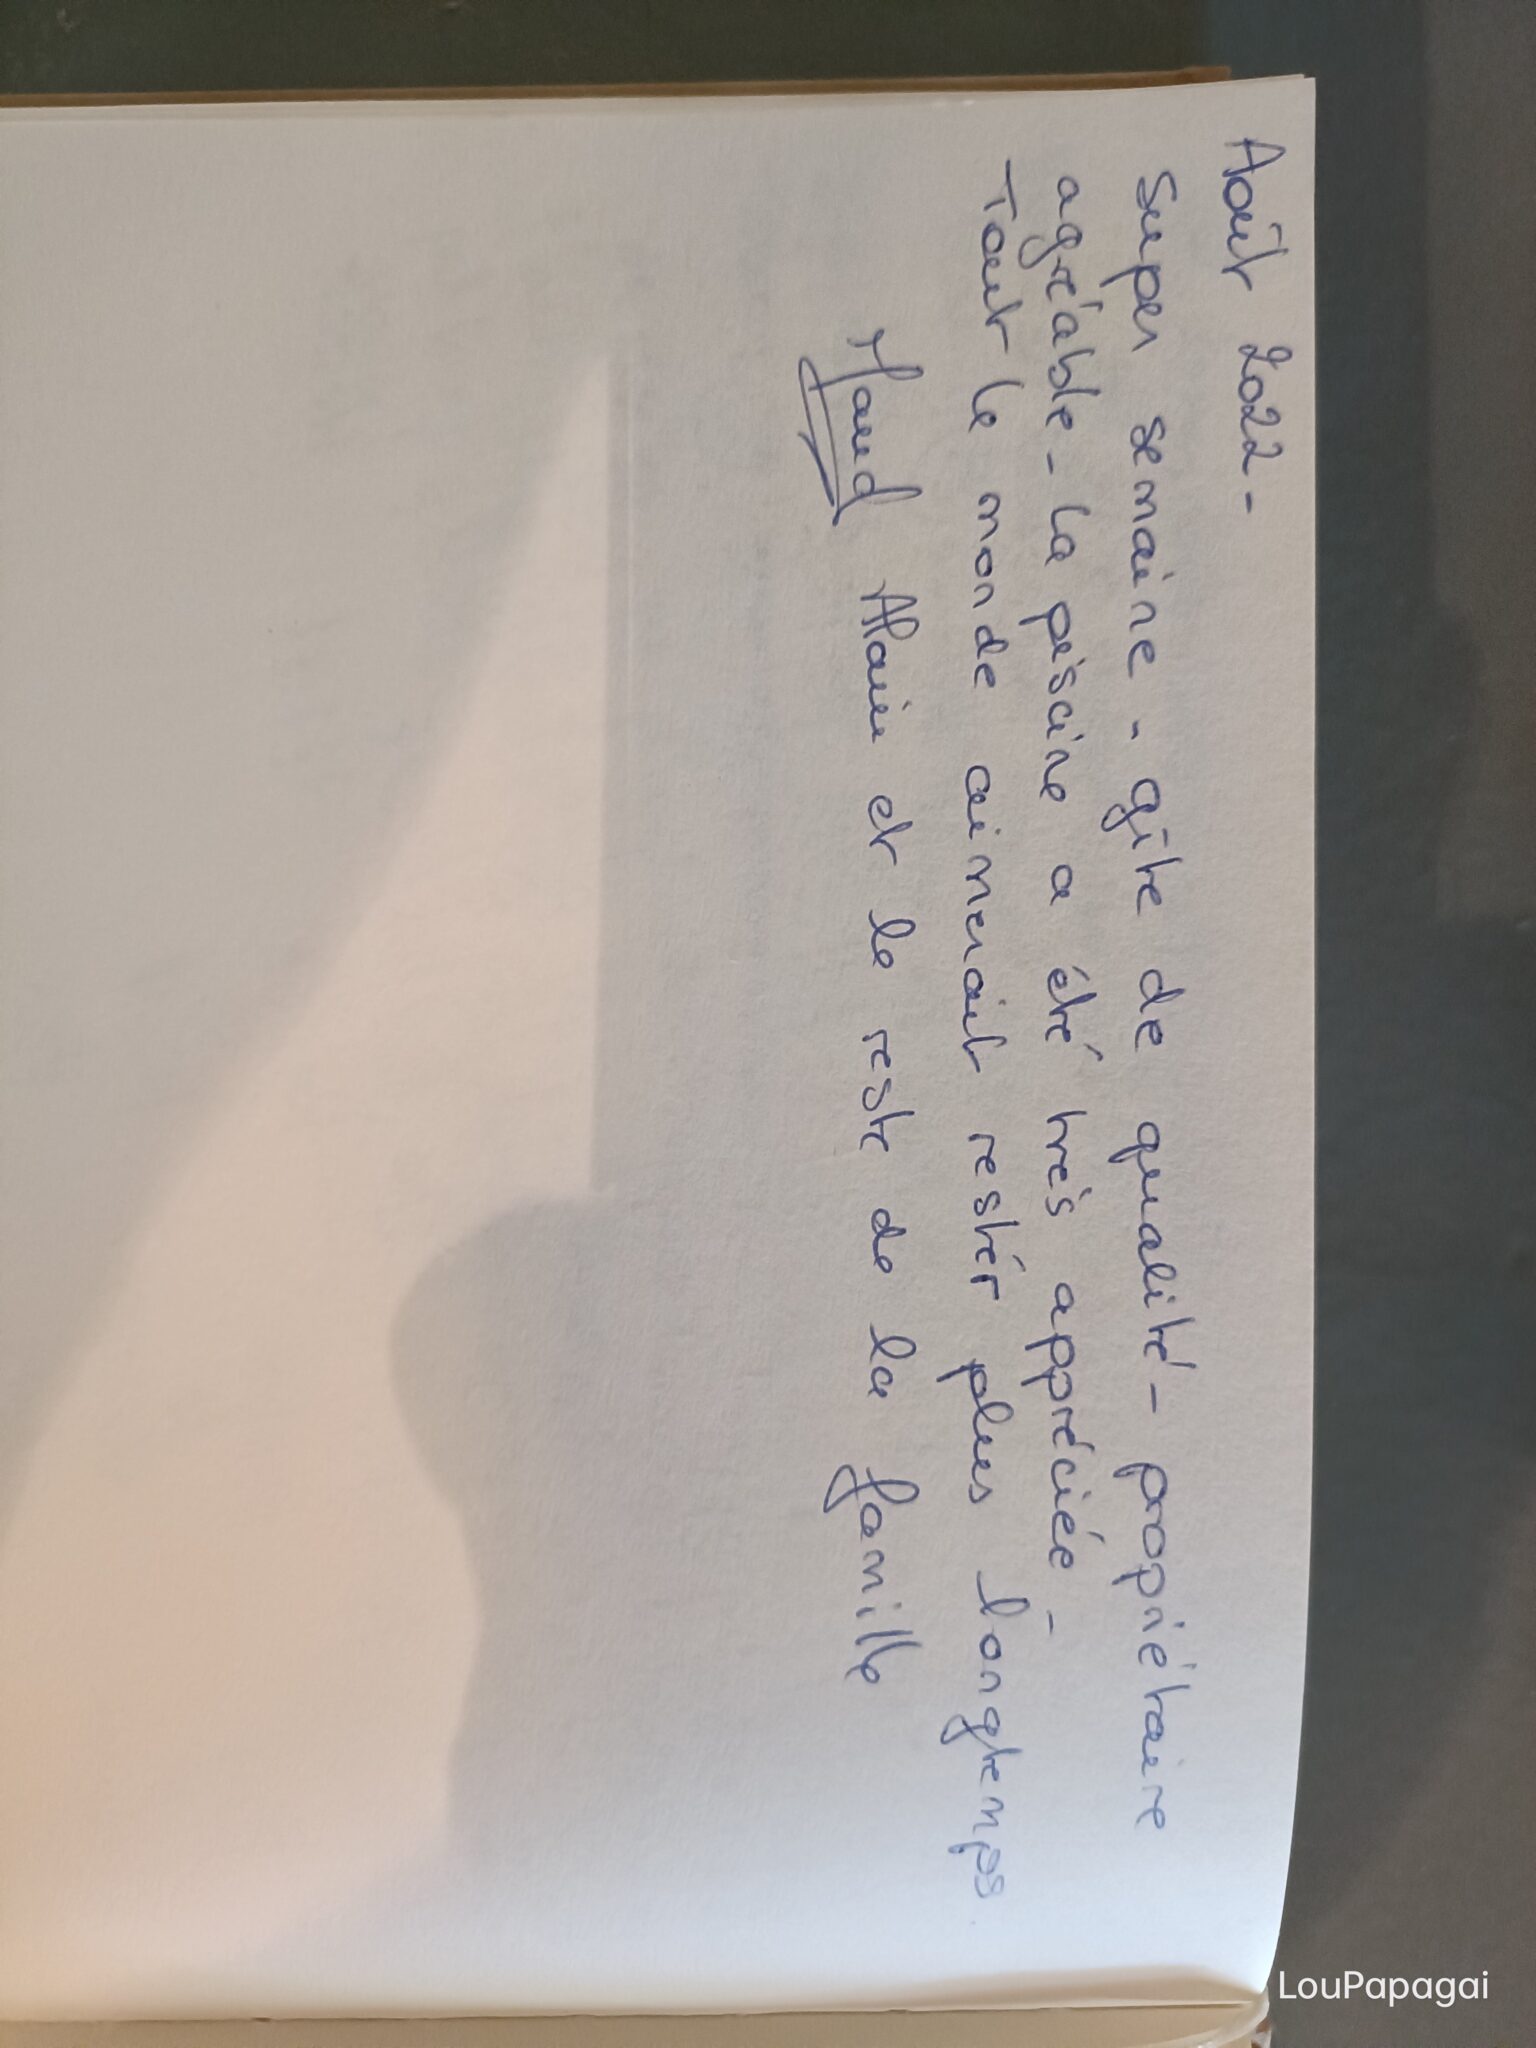 Août 2022 -
Super semaine - gîte de qualité - propriétaire
agréable - la piscine a été très appréciée -
Tout le monde aimerait rester plus longtemps.
Maud Alain et le reste de la famille
LouPapagai